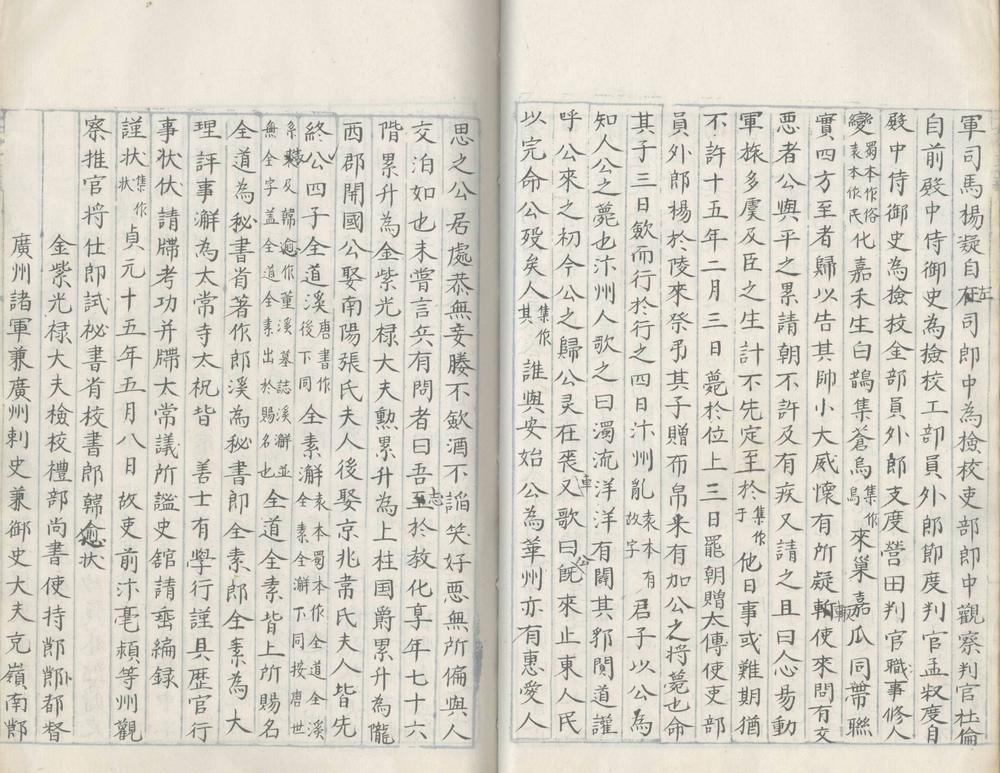 軍司馬楊凝自左司郎中為檢校吏部郎中觀察判官杜倫
自前殿中侍御史為檢校工部員外郎節度判官孟叔度自
殿中侍御史為檢校金部員外郎支度營田判官職事修人
變蜀本作俗袁本作民化嘉禾生白鵲集蒼烏集作烏來巢嘉瓜同帶聯
實四方至者歸以告其帥小大威懷有所疑輒使來問有交
惡者公與平之累請朝不許及有疾又請之且曰人心易動
軍旅多虞及臣之生計不先定至於集作于他日事或難期猶
不許十五年二月三日薨於位上三日罷朝贈太傅使吏部
員外郎楊於陵來祭弔其子贈布帛米有加公之將薨也命
其子三日歛而行於行之四日汴州亂袁本有故字君子以公為
知人公之薨也汴州人歌之曰濁流洋洋有闢其郛闐道讙
呼公來之初今公之歸公灵在喪車又歌曰公既來止東人民
以完命公歿矣人集作其誰與安始公為華州亦有惠愛人
思之公居處恭無妾媵不飲酒不諂笑好惡無所偏與人
交泊如也未嘗言兵有問者曰吾志於教化享年七十六
階累升為金紫光禄大夫勲累升為上柱国爵累升為隴
西郡開國公娶南陽張氏夫人後娶京兆常氏夫人皆先
終公四子全道溪唐書作後下同全素澥袁本蜀本作全道全溪全素全澥下同按唐世
系表及韓愈作董溪墓誌溪澥並無全字盖全道全素出於賜名也全道全素皆上所賜名
全道為秘書省著作郎溪為秘書郎全素為大
理評事澥為太常寺太祝皆善士有學行謹具歷官行
事状伏請牒考功并牒太常議所謚史舘請垂編録
謹状集作状貞元十五年五月八日故吏前汴亳頴等州觀
察推官將仕郎試秘書省校書郎韓愈状
金紫光禄大夫檢校禮部尚書使持節都督
廣州諸軍兼廣州刺史兼御史大夫克嶺南節